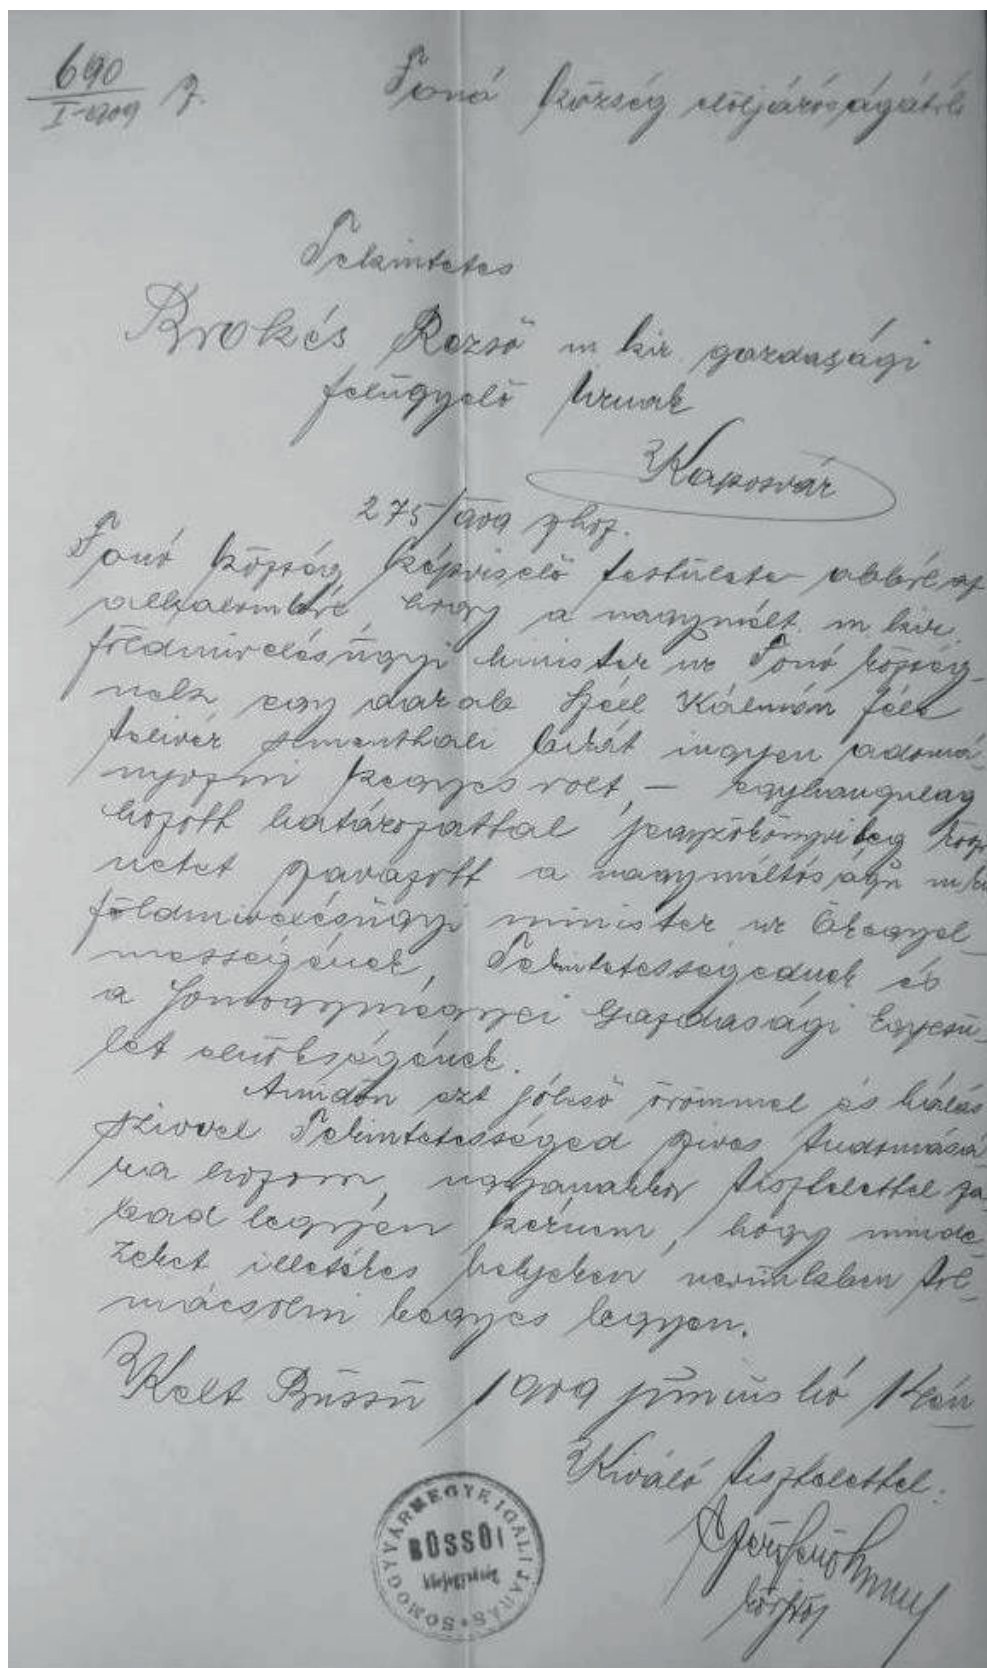 690
I-909 z.
Fonó község elöljáróságától
Tekintetes
Brokés Rezső m kir. gazdasági
felügyelő Urnak
Kaposvár
275/909 zhoz.
Fonó község képviselő testülete abból az
alkalomból, hogy a nagymélt. m. kir.
földmivelésügyi minister ur Fonó község-
nek egy darab Széll Kálmán féle
telivér simenthali bikát ingyen adomá-
nyozni kegyes volt, – egyhangulag
hozott határozattal jegyzőkönyvileg kösz
netet szavazott a nagyméltóságu m. ki
földmivelésügyi minister ur Őkegyel-
mességének, Tekintetességednek és
a Somogymegyei Gazdasági Egyesü-
let elnökségének.
Amidőn ezt jóleső örömmel és hálás
szivvel Tekintetességed szives tudomásá-
ra hozom, ugyanakkor tisztelettel sza
bad legyen kérnem, hogy minde-
zeket illetékes helyeken nevünkben tol-
mácsolni kegyes legyen.
Kelt Büssü 1909 június hó
Kiváló tisztelettel.
körjző
SOMOGYVÁRMEGYE IGALI JÁRÁS
BÜSSÜI
körjegyzőség